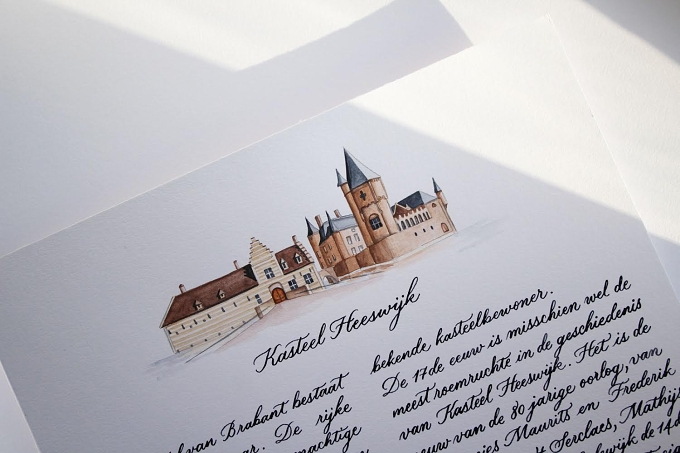 Kasteel Heeswijk
van Brabant bestaat
De rijke
machtige
bekende kasteelbewoner.
De 17de eeuw is misschien wel de
meest roemruchte in de geschiedenis
van Kasteel Heeswijk. Het is de
eeuw van de 80 jarige oorlog, van
Maurits en Frederik
Serclaes, Mathijs
de 14d